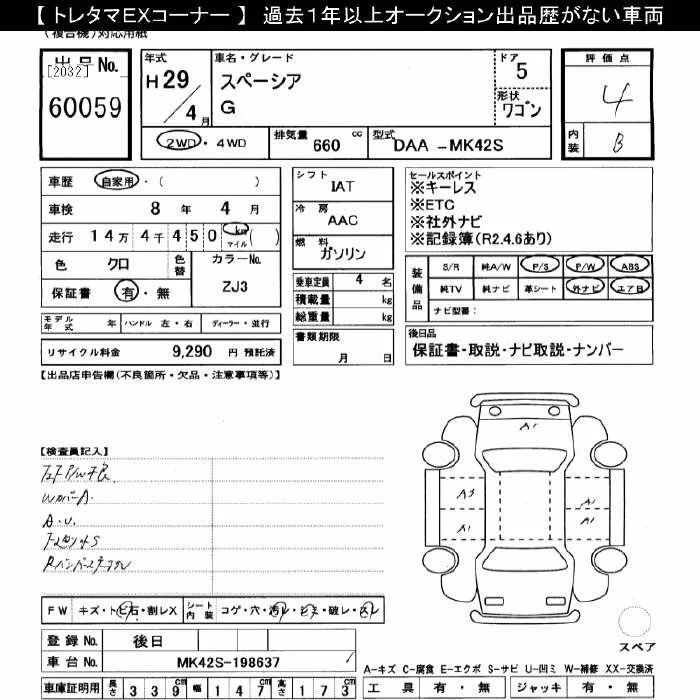 【 トレタマEXコーナー 】 過去１年以上オークション出品歴がない車両
(複合機)対応用紙
出品No.
[2032]
60059
年式
H 29 / 4月
車名・グレード
スペーシア
G
ドア
5
形状
ワゴン
評価点
4
内装
B
2WD・4WD
排気量 660 cc
型式 DAA -MK42S
車歴 自家用・( )
車検 8 年 4 月
走行 14万 4千 450 km マイル ( )
色 クロ
色替
カラーNo.
ZJ3
保証書 有・無
モデル年式 年 ハンドル 左・右 ディーラー・並行
リサイクル料金 9,290 円 預託済
シフト
IAT
冷房
AAC
燃料
ガソリン
乗車定員 4 名
積載量 kg
総重量 kg
書類期限
月 日
セールスポイント
※キーレス
※ETC
※社外ナビ
※記録簿(R2.4.6あり)
装備品
S/R 純A/W P/S P/W ABS
純TV 純ナビ 革シート 外ナビ エアB
ナビ型番：
後日品
保証書・取説・ナビ取説・ナンバー
【出品店申告欄(不良箇所・欠品・注意事項等)】
【検査員記入】
A.U.
A1
A3
A1
A1
A1
スペア
FW キズ・トビ石・割レX
シート内装 コゲ・穴・汚レ・シミ・破レ・スレ
登録No. 後日
車台No. MK42S-198637
車庫証明用 長さ 339cm 幅 147cm 高さ 173cm
A-キズ C-腐食 E-エクボ S-サビ U-凹ミ W-補修 XX-交換済
工具 有・無 ジャッキ 有・無